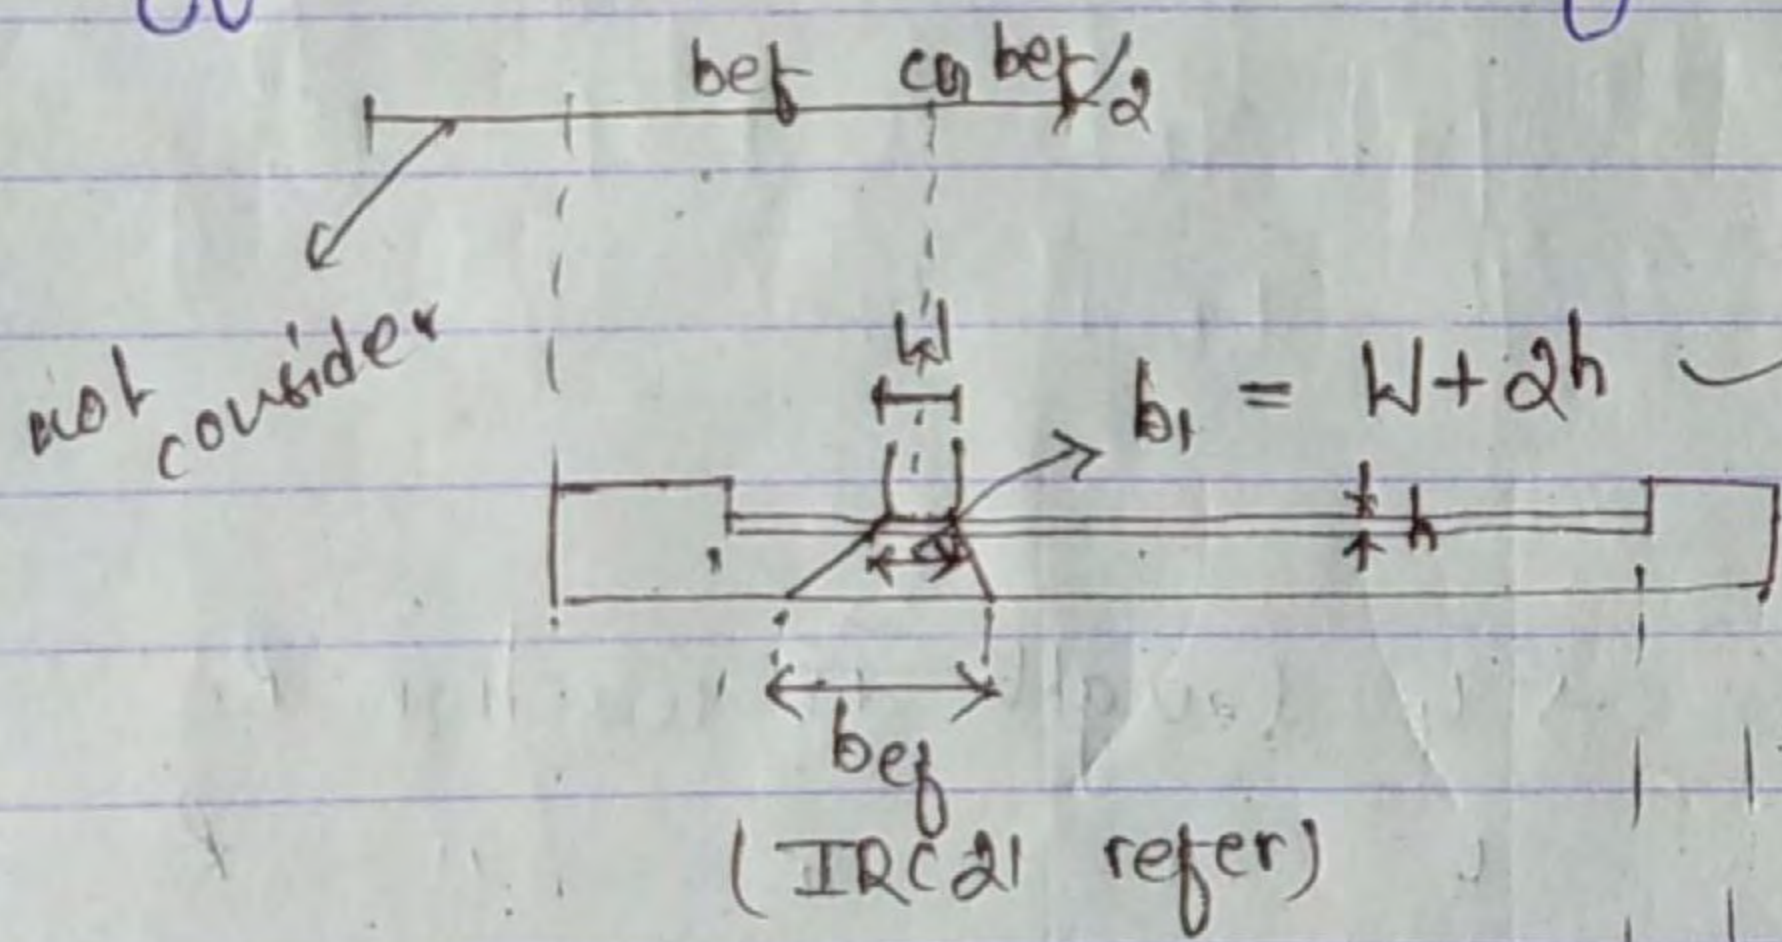 bef bef/2
W
not
consider
b₁ = W+2h
h
bef
(IRC21 refer)